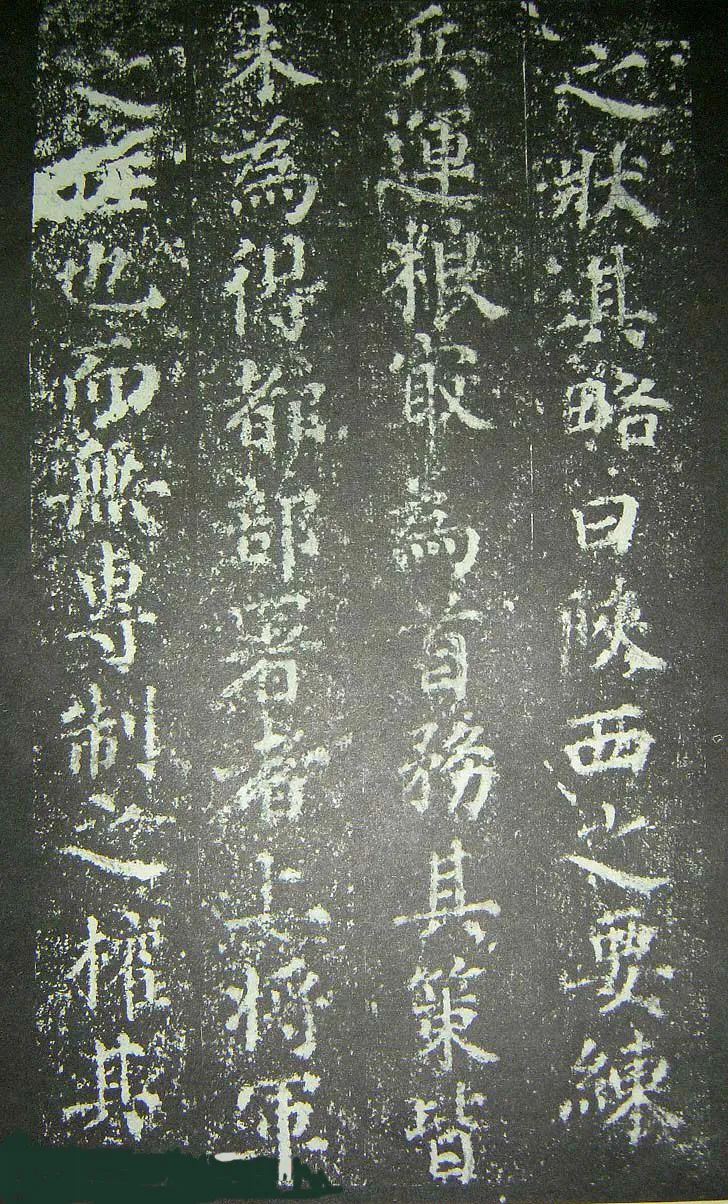 之狀其略曰陝西之要練
兵運粮㝡為首務其策皆
未為得都部署者上將軍
之任也而無專制之權其